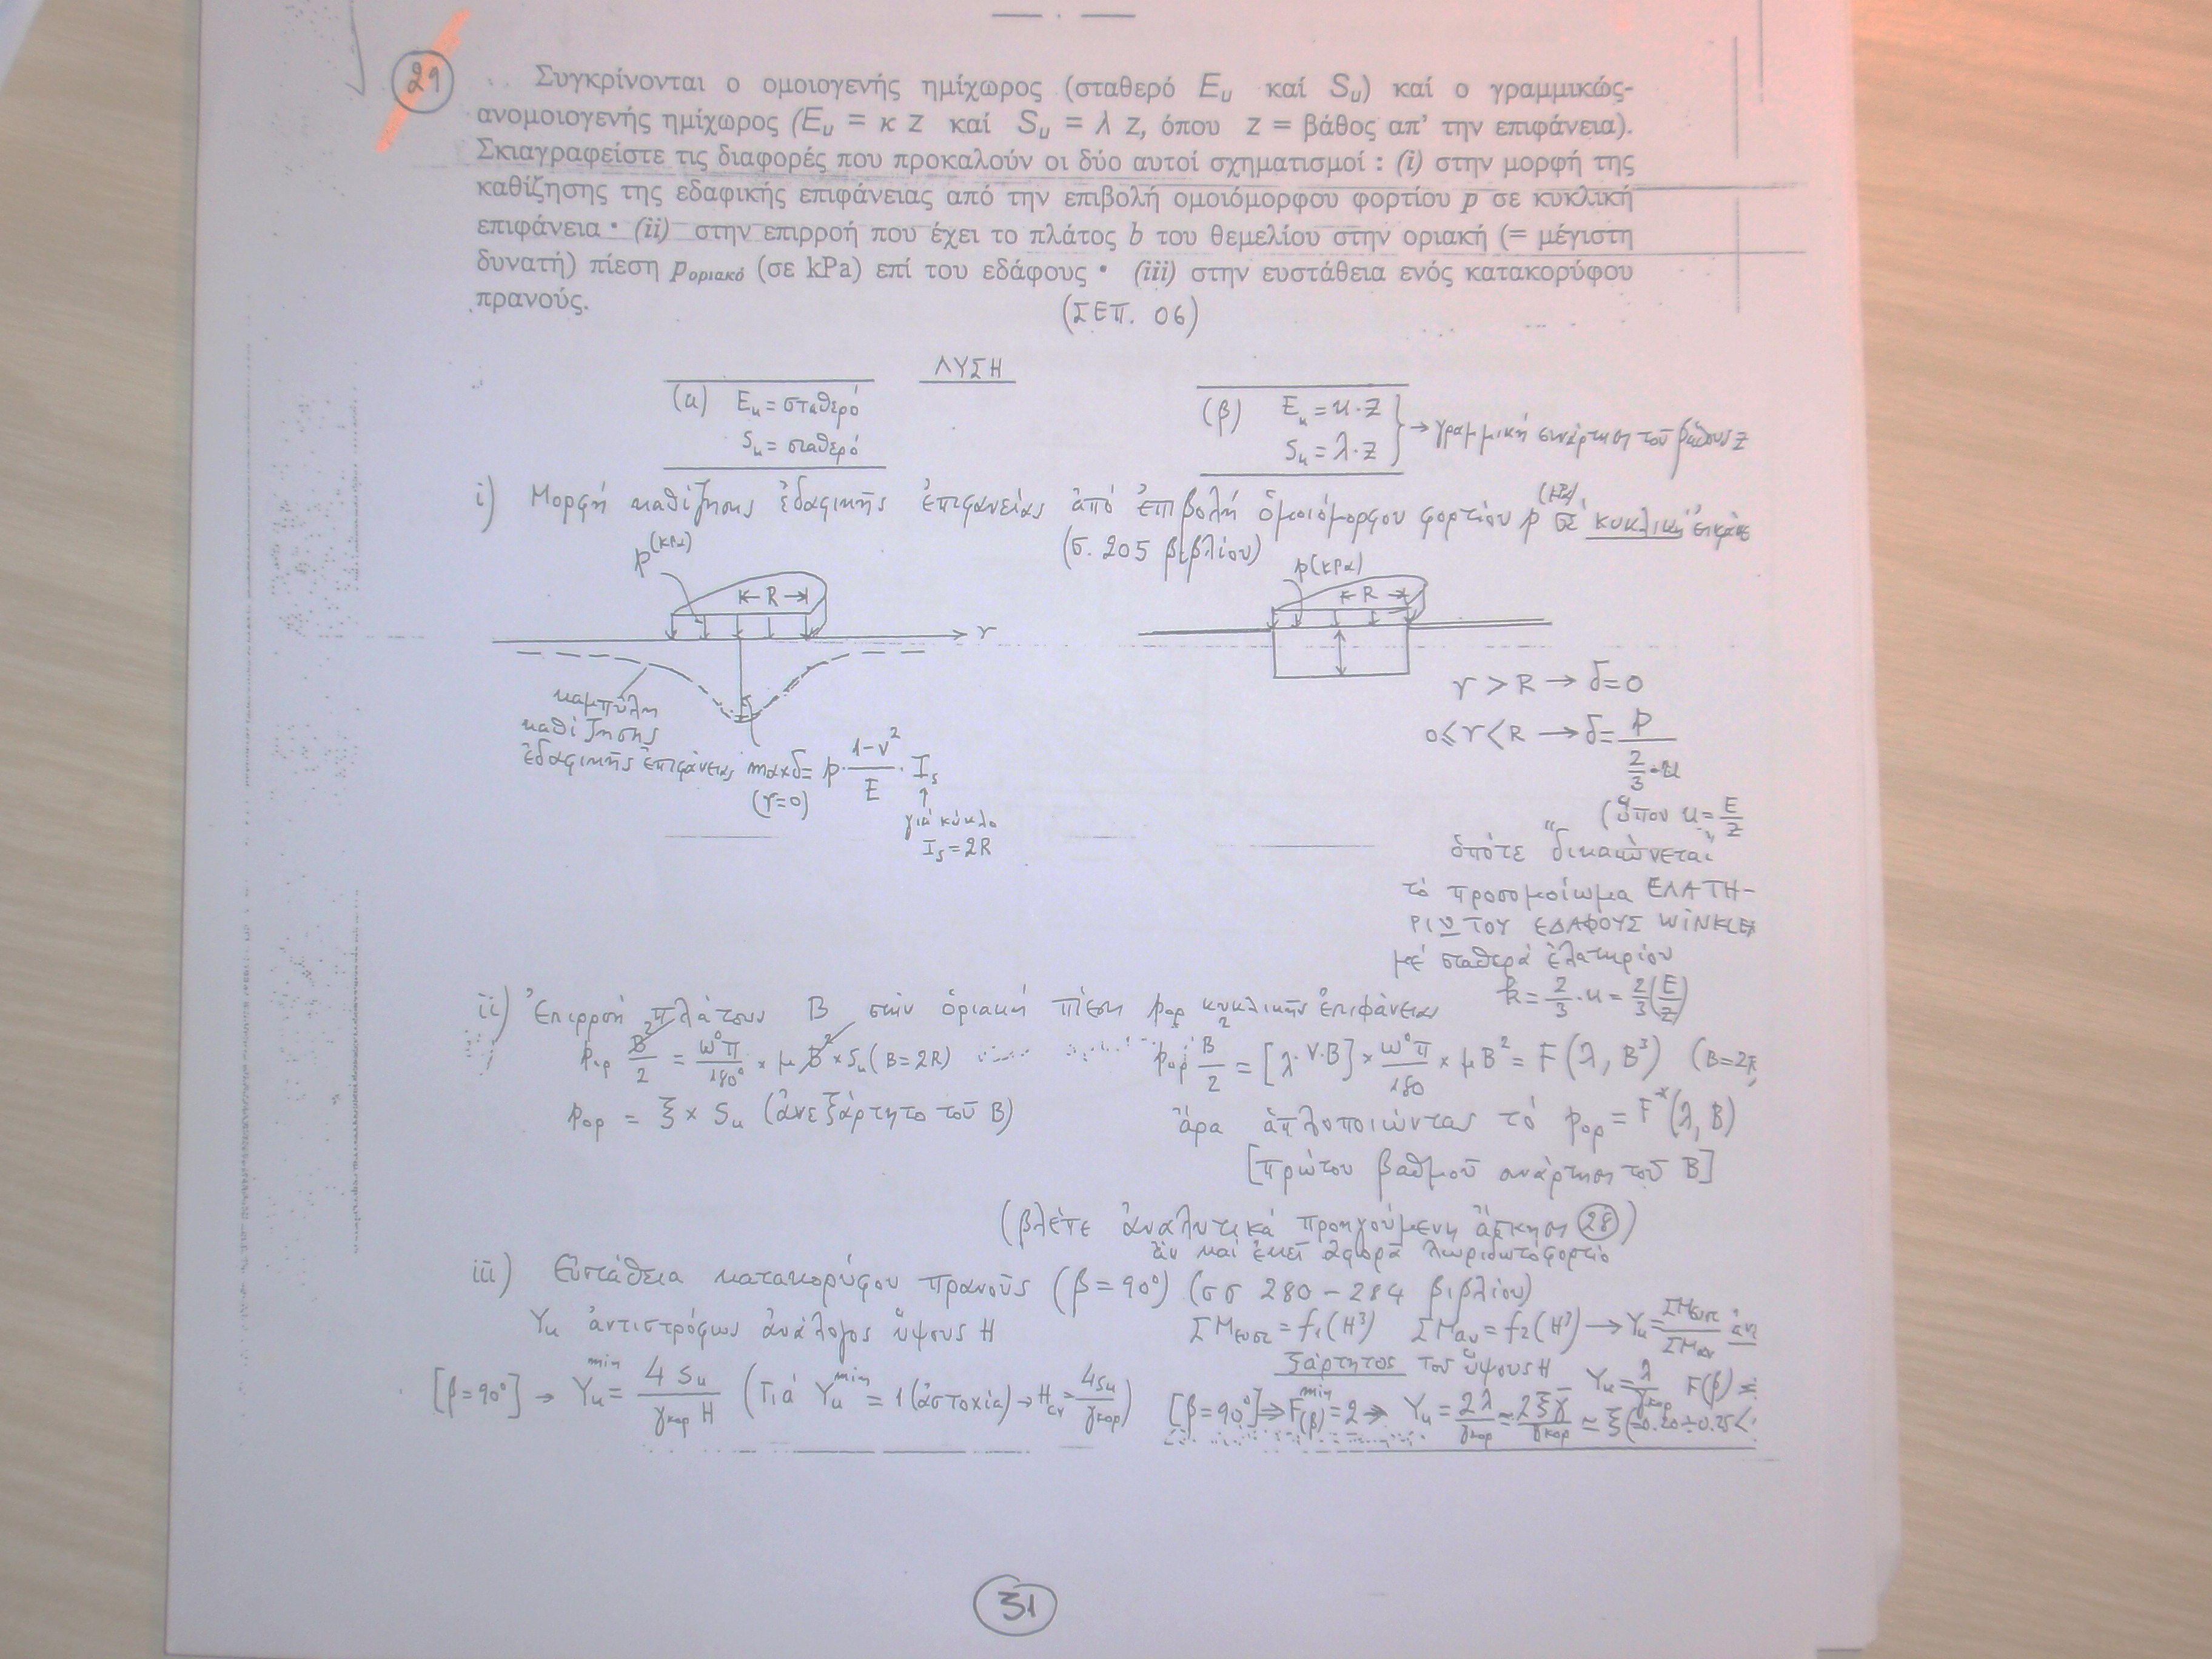 29
Συγκρίνονται ο ομοιογενής ημίχωρος (σταθερό Eu καί Su) καί ο γραμμικώς-
ανομοιογενής ημίχωρος (Eu = κ z καί Su = λ z, όπου z = βάθος απ' την επιφάνεια).
Σκιαγραφείστε τις διαφορές που προκαλούν οι δύο αυτοί σχηματισμοί : (i) στην μορφή της
καθίζησης της εδαφικής επιφάνειας από την επιβολή ομοιόμορφου φορτίου p σε κυκλική
επιφάνεια • (ii) στην επιρροή που έχει το πλάτος b του θεμελίου στην οριακή (= μέγιστη
δυνατή) πίεση pοριακό (σε kPa) επί του εδάφους • (iii) στην ευστάθεια ενός κατακορύφου
πρανούς.
(ΣΕΠ. 06)
ΛΥΣΗ
(α) Eu = σταθερό
Su = σταθερό
(β) Eu = κ·z
Su = λ·z
→ γραμμική συνάρτηση τοῦ βάθους z
i) Μορφή καθίζησης ἐδαφικῆς ἐπιφανείας ἀπό ἐπιβολή ὁμοιόμορφου φορτίου p (kPa) σέ κυκλική
(σ. 205 βιβλίου)
p (kPa)
R
r
καμπύλη
καθίζησης
ἐδαφικῆς ἐπιφάνειας
maxδ = p · (1-ν²)/E · Is
(r=0)
γιά κύκλο
Is = 2R
p (kPa)
R
r > R → δ=0
0≤r<R → δ= p/(2/3·κ)
(ὅπου κ = E/z
ὁπότε "δικαιώνεται"
τό προσομοίωμα ΕΛΑΤΗ-
ΡΙΟΥ ΤΟΥ ΕΔΑΦΟΥΣ WINKLER
μέ σταθερά ἐλατηρίου
k = 2/3·κ = 2/3(E/z)
ii) Ἐπιρροή πλάτους B στήν ὁριακή πίεση pορ κυκλικῆς ἐπιφάνειας
pορ B²/2 = ω°π/180° × μ B² × Su (B=2R)
pορ = ξ × Su (ἀνεξάρτητο τοῦ B)
pορ B²/2 = [λ·ν·B] × ω°π/180 × μB² = F(λ, B³) (B=2R
ἄρα ἁπλοποιώντας τό pορ = F*(λ, B)
[πρώτου βαθμοῦ συνάρτηση τοῦ B]
(βλέπε ἀναλυτικά προηγούμενη ἄσκηση 28)
ἄν καί ἐκεῖ ἀφορᾶ λωριδωτό φορτίο
iii) Εὐστάθεια κατακορύφου πρανοῦς (β=90°) (σσ 280 – 284 βιβλίου)
Υu ἀντιστρόφως ἀνάλογος ὕψους H
[β=90°] → Υu min = 4Su/(γκορ H) (Γιά Υu min = 1 (ἀστοχία) → Hcr = 4Su/γκορ)
ΣΜευστ = f1(H³) ΣΜαν = f2(H³) → Υu = ΣΜευστ/ΣΜαν ἀνε
ξάρτητος τοῦ ὕψους H Υu = λ/γκορ F(β) =
[β=90°] ⇒ F(β) min = 2 ⇒ Υu = 2λ/γκορ ≃ 2ξγ̄/γκορ ≃ ξ (=0.20÷0.25<
31